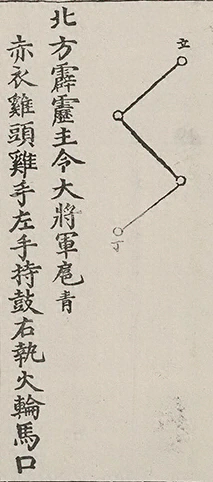 立
丁
北方霹靂主令大將軍扈青
赤衣雞頭雞手左手持鼓右執火輪馬口